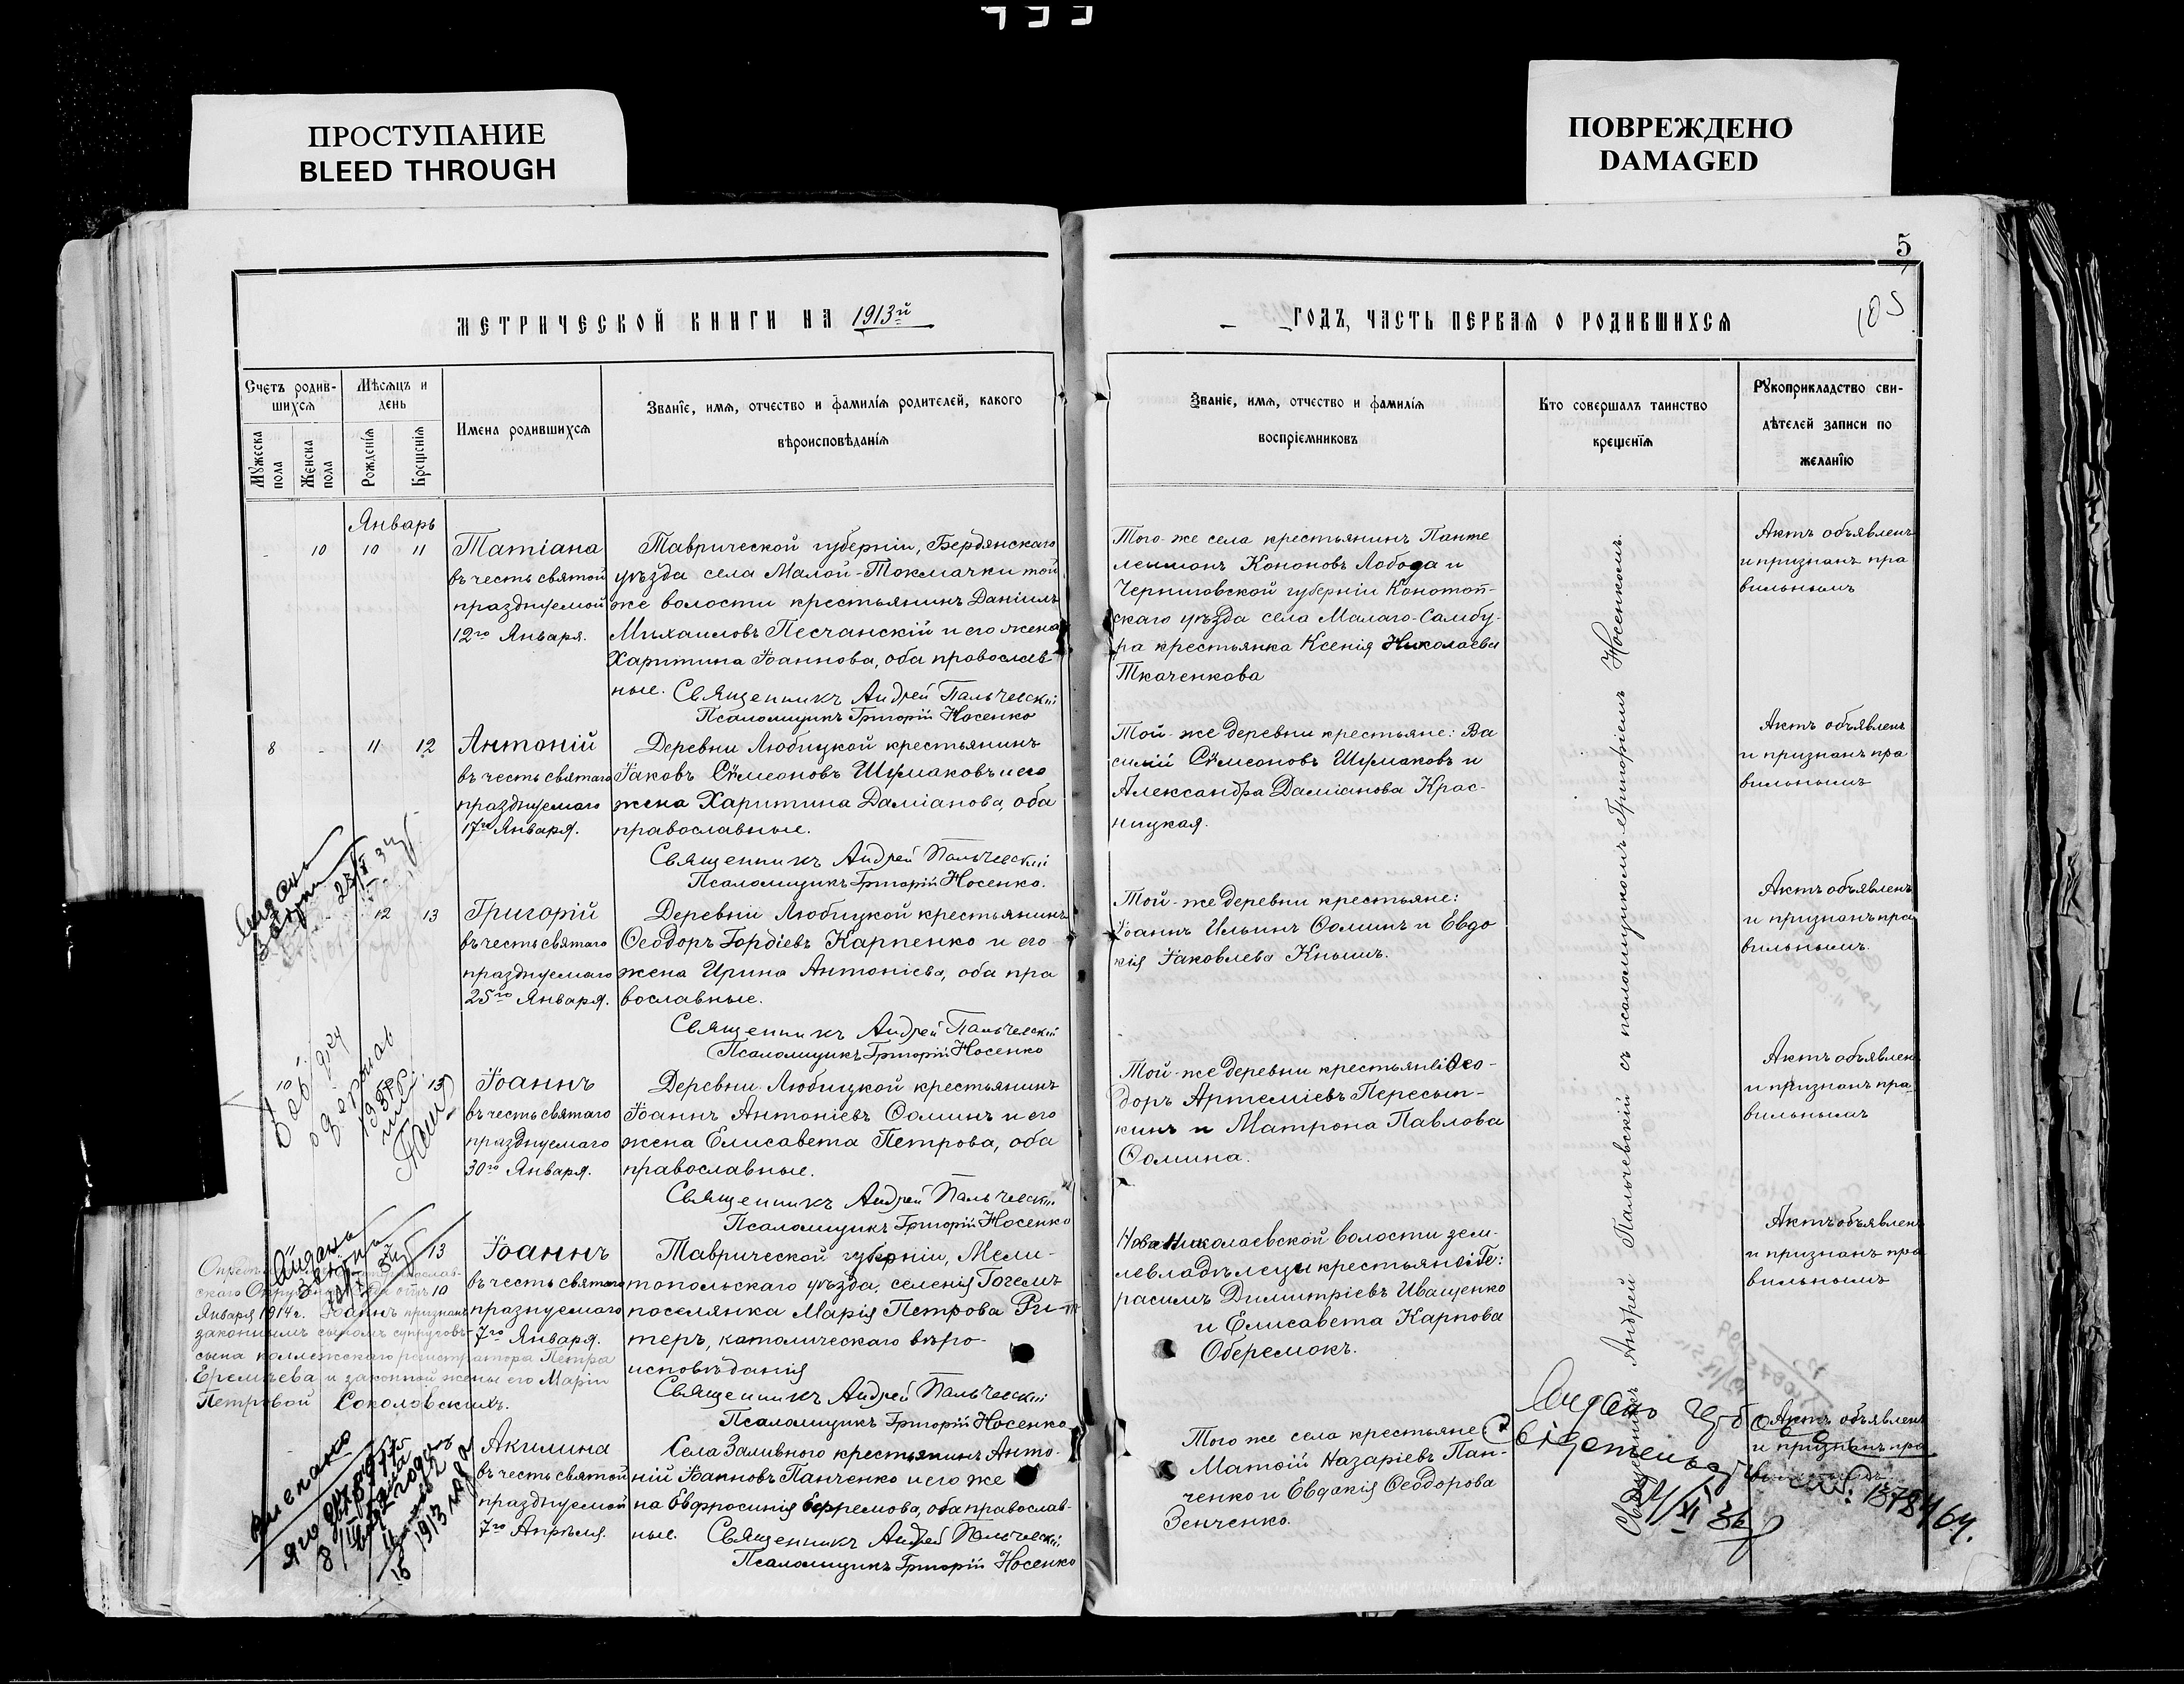 ПРОСТУПАНИЕ
BLEED THROUGH
ПОВРЕЖДЕНО
DAMAGED
5
105
МЕТРИЧЕСКОЙ КНИГИ НА 1913й
ГОДЪ, ЧАСТЬ ПЕРВАЯ О РОДИВШИХСЯ
Счетъ родив-
шихся
Мужеска пола
Женска пола
Мѣсяцъ и
день
Рожденія
Крещенія
Имена родившихся
Званіе, имя, отчество и фамилія родителей, какого
вѣроисповѣданія
Званіе, имя, отчество и фамилія
воспріемниковъ
Кто совершалъ таинство
крещенія
Рукоприкладство сви-
дѣтелей записи по
желанію
Январь
10 10 11
Татіана
въ честь святой
празднуемой
12го Января.
Таврической губерніи, Бердянскаго
уѣзда села Малой-Токмачки той
же волости крестьянинъ Даніилъ
Михаиловъ Песчанскій и его жена
Харитина Іоаннова, оба православ
ные. Священникъ Андрей Пальчевскій
Псаломщикъ Григорій Носенко
Того-же села крестьянинъ Панте
леимонъ Кононовъ Лобода и
Черниговской губерніи Конотоп-
скаго уѣзда села Малаго-Самбу-
ра крестьянка Ксенія Николаева
Ткаченкова
Актъ объявленъ
и признанъ пра
вильнымъ
8 - 11 12
Антоній
въ честь святаго
празднуемаго
17го Января.
Деревни Любицкой крестьянинъ
Іаковъ Сѵмеоновъ Шумаковъ и его
жена Харитина Даміанова, оба
православные.
Священникъ Андрей Пальчевскій
Псаломщикъ Григорій Носенко.
Той-же деревни крестьяне: Ва
силій Сѵмеоновъ Шумаковъ и
Александра Даміанова Крас-
ницкая.
Актъ объявленъ
и признанъ пра
вильнымъ
12 13
Григорій
въ честь святаго
празднуемаго
25го Января.
Деревни Любицкой крестьянинъ
Ѳеодоръ Гордіевъ Карпенко и его
жена Ирина Антоніева, оба пра
вославные.
Священникъ Андрей Пальчевскій
Псаломщикъ Григорій Носенко
Той-же деревни крестьяне:
Іоаннъ Ильинъ Ѳоминъ и Евдо
кія Іаковлева Кнышъ.
Актъ объявленъ
и признанъ пра
вильнымъ.
10 13
Іоаннъ
въ честь святаго
празднуемаго
30го Января.
Деревни Любицкой крестьянинъ
Іоаннъ Антоніевъ Ѳоминъ и его
жена Елисавета Петрова, оба
православные.
Священникъ Андрей Пальчевскій
Псаломщикъ Григорій Носенко
Той-же деревни крестьяне: Ѳео-
доръ Артеміевъ Пересып-
кинъ и Матрона Павлова
Ѳомина.
Актъ объявлен
и признанъ пра-
вильнымъ
13
Іоаннъ
въ честь святаго
празнуемаго
7го Января.
Таврической губерніи, Мели-
топольскаго уѣзда, селенія Гогемъ
поселянка Марія Петрова Рит-
теръ, католическаго вѣро-
исповѣданія
Священникъ Андрей Пальчевскій
Псаломщикъ Григорій Носенко
Ново Николаевской волости зем-
левладѣлецы крестьяне: Ге:
расимъ Димитріевъ Иващенко
и Елисавета Карпова
Оберемокъ.
Актъ объявлен
и признанъ пра
вильнымъ
Января 1914 г. Іоаннъ признанъ
законнымъ сыномъ супруговъ-
сына коллежскаго регистратора Петра
Еремѣева и законной жены его Маріи
Петровой Соколовскихъ.
Акилина
въ честь святой
празднуемой
7го Апрѣля.
Села Заливного крестьянинъ Анто-
ній Іоанновъ Панченко и его же
на Евфросинія Ефремова, оба православ-
ные. Священникъ Андрей Пальчевскій
Псаломщикъ Григорій Носенко
Того же села крестьяне
Матѳій Назаріевъ Пан-
ченко и Евдокія Ѳеодорова
Зенченко.
Актъ объявлен
и признанъ пра
Священникъ Андрей Пальчевскій съ псаломщикомъ Григоріемъ Носенкомъ.